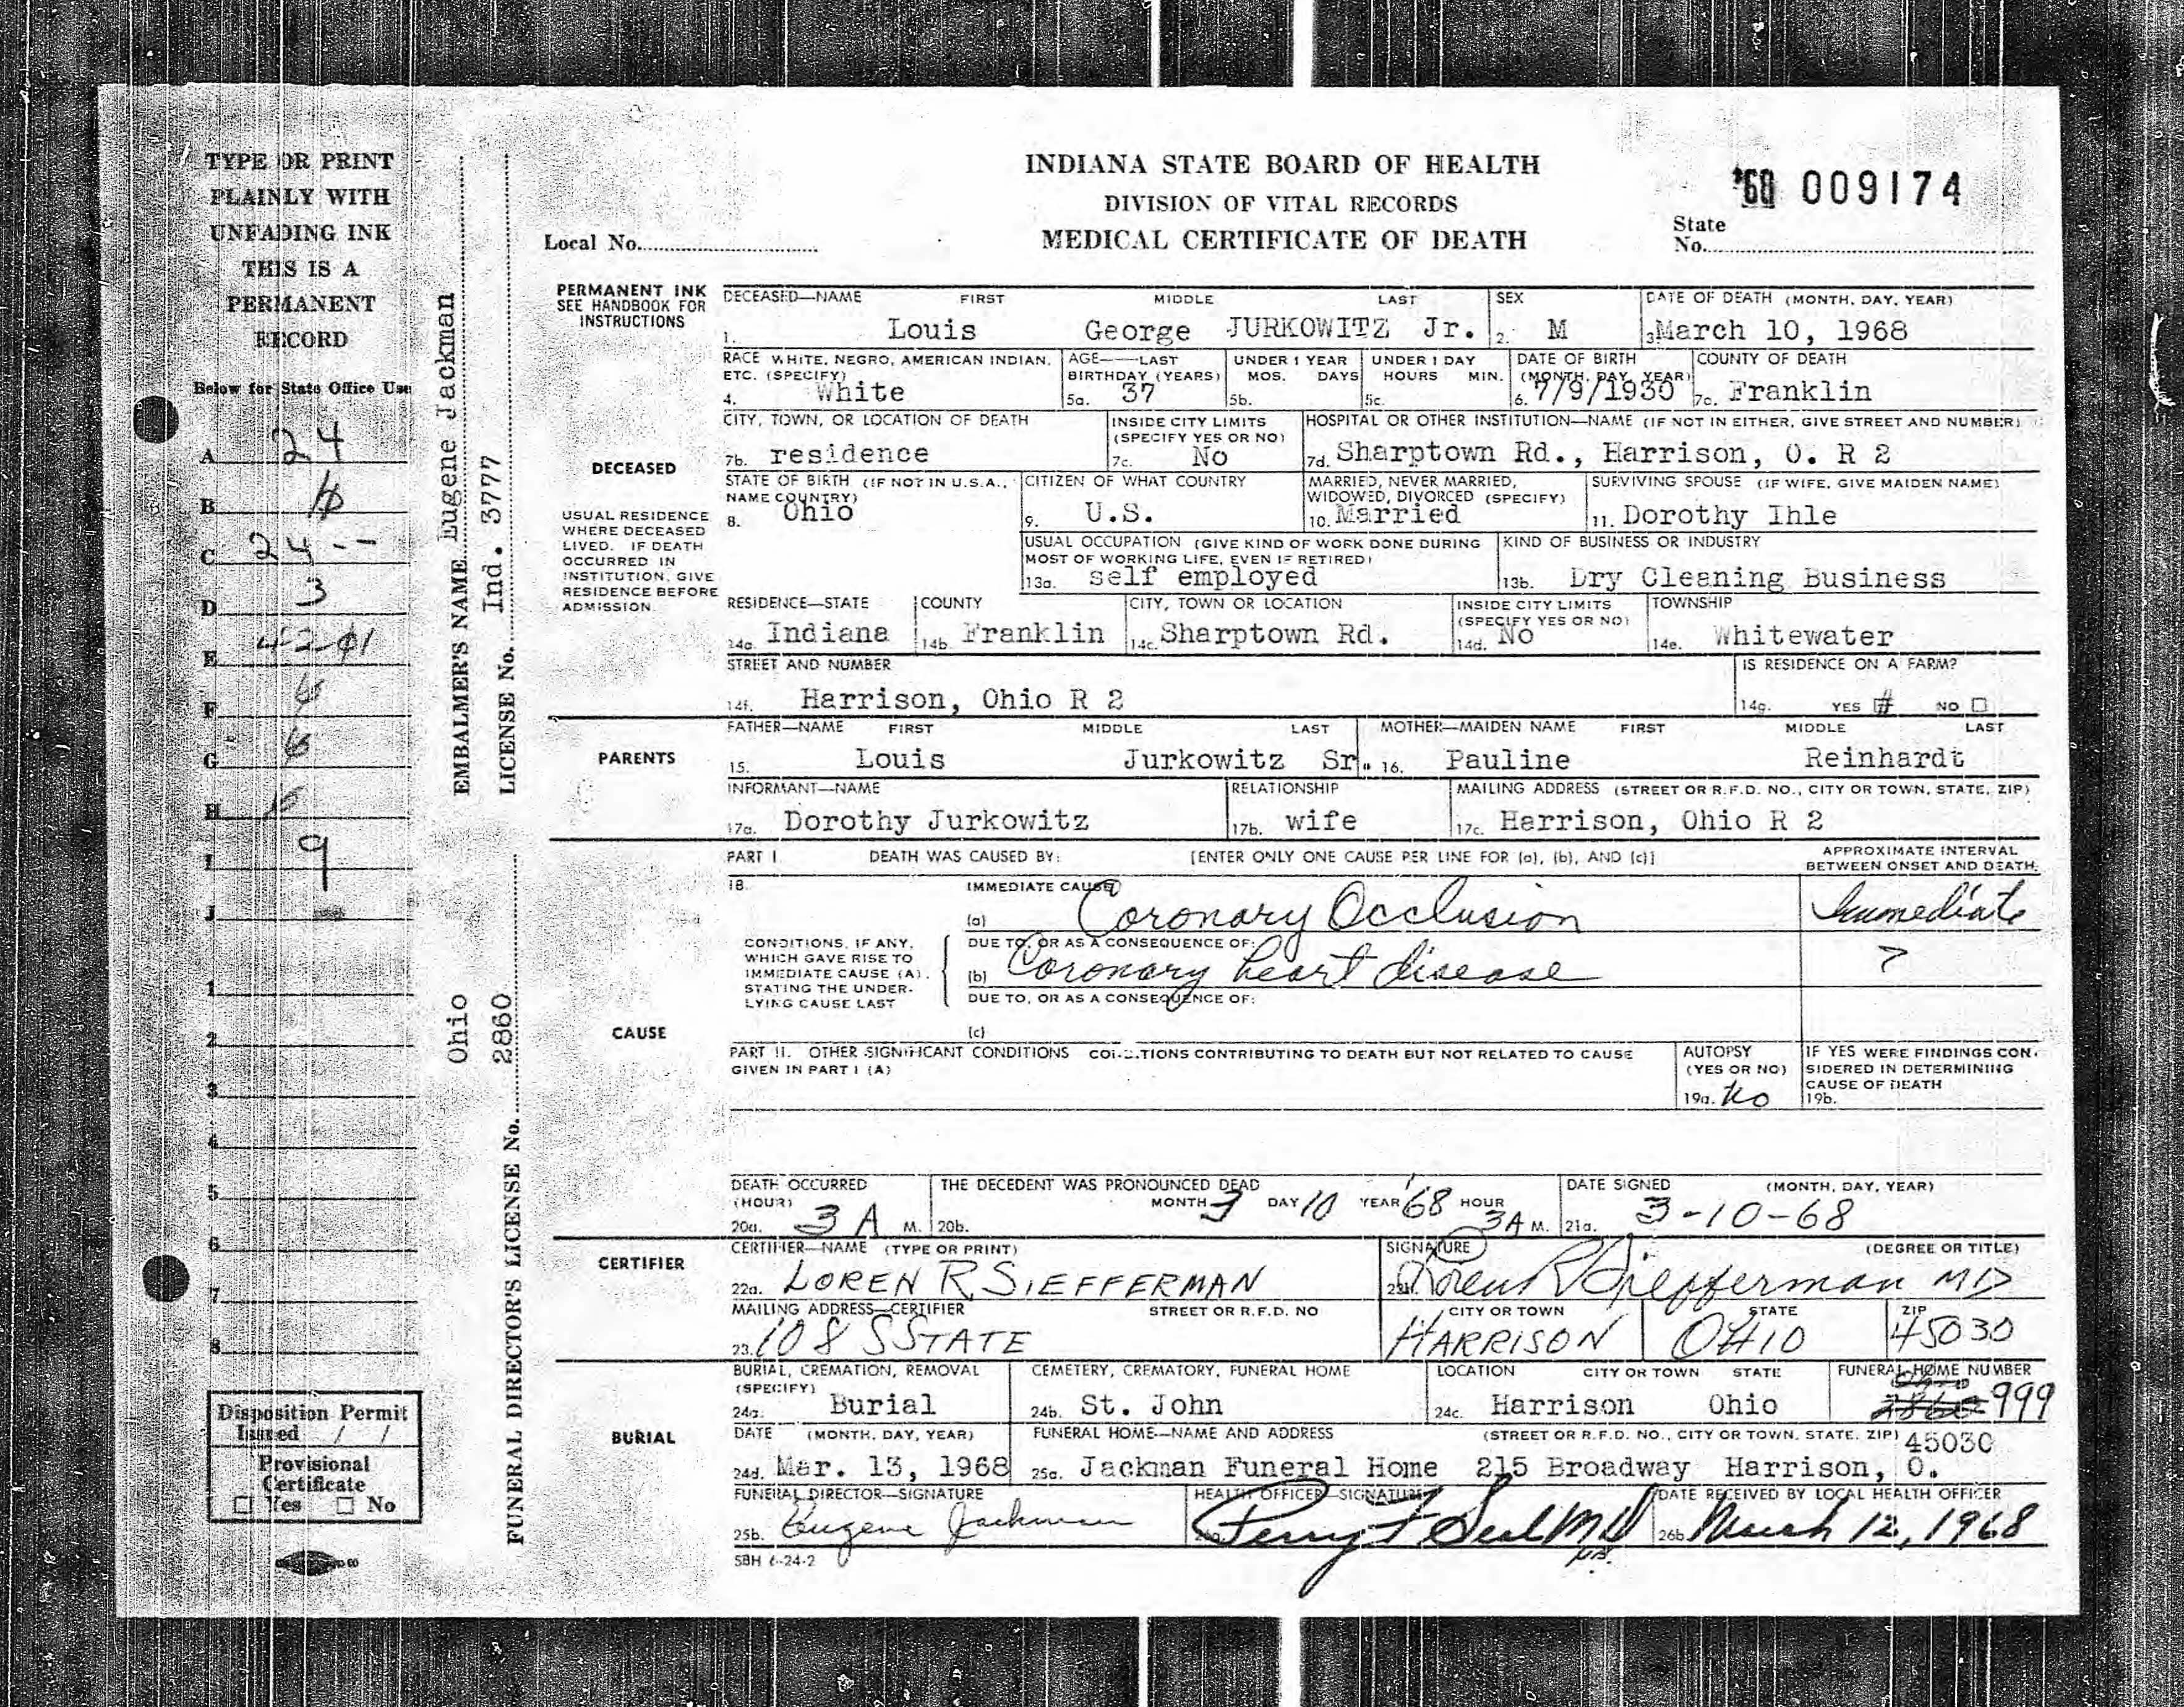 TYPE OR PRINT
PLAINLY WITH
UNFADING INK
THIS IS A
PERMANENT
RECORD
Below for State Office Use
A 24
B
C 24 --
D 3
E
F
G
H
I 9
J
1
2
3
4
5
6
7
8
Disposition Permit
Issued / /
Provisional
Certificate
☐ Yes ☐ No
EMBALMER'S NAME Eugene Jackman
LICENSE No. Ind. 3777
FUNERAL DIRECTOR'S LICENSE No. Ohio 2860
INDIANA STATE BOARD OF HEALTH
DIVISION OF VITAL RECORDS
MEDICAL CERTIFICATE OF DEATH
Local No.
009174
State
No.
PERMANENT INK
SEE HANDBOOK FOR
INSTRUCTIONS
DECEASED—NAME FIRST MIDDLE LAST SEX DATE OF DEATH (MONTH, DAY, YEAR)
1. Louis George JURKOWITZ Jr. 2. M 3 March 10, 1968
RACE WHITE, NEGRO, AMERICAN INDIAN, AGE—LAST UNDER 1 YEAR UNDER 1 DAY DATE OF BIRTH COUNTY OF DEATH
ETC. (SPECIFY) BIRTHDAY (YEARS) MOS. DAYS HOURS MIN. (MONTH, DAY, YEAR)
4. White 5a. 37 5b. 5c. 6. 7/9/1930 7a. Franklin
CITY, TOWN, OR LOCATION OF DEATH INSIDE CITY LIMITS HOSPITAL OR OTHER INSTITUTION—NAME (IF NOT IN EITHER, GIVE STREET AND NUMBER)
(SPECIFY YES OR NO)
DECEASED
7b. residence 7c. No 7d. Sharptown Rd., Harrison, O. R 2
STATE OF BIRTH (IF NOT IN U.S.A., CITIZEN OF WHAT COUNTRY MARRIED, NEVER MARRIED, SURVIVING SPOUSE (IF WIFE, GIVE MAIDEN NAME)
NAME COUNTRY) WIDOWED, DIVORCED (SPECIFY)
8. Ohio 9. U.S. 10. Married 11. Dorothy Ihle
USUAL RESIDENCE
WHERE DECEASED
LIVED. IF DEATH
OCCURRED IN
INSTITUTION, GIVE
RESIDENCE BEFORE
ADMISSION.
USUAL OCCUPATION (GIVE KIND OF WORK DONE DURING KIND OF BUSINESS OR INDUSTRY
MOST OF WORKING LIFE, EVEN IF RETIRED)
13a. self employed 13b. Dry Cleaning Business
RESIDENCE—STATE COUNTY CITY, TOWN OR LOCATION INSIDE CITY LIMITS TOWNSHIP
(SPECIFY YES OR NO)
14a. Indiana 14b. Franklin 14c. Sharptown Rd. 14d. No 14e. Whitewater
STREET AND NUMBER IS RESIDENCE ON A FARM?
14f. Harrison, Ohio R 2 14g. YES # NO ☐
PARENTS
FATHER—NAME FIRST MIDDLE LAST MOTHER—MAIDEN NAME FIRST MIDDLE LAST
15. Louis Jurkowitz Sr. 16. Pauline Reinhardt
INFORMANT—NAME RELATIONSHIP MAILING ADDRESS (STREET OR R.F.D. NO., CITY OR TOWN, STATE, ZIP)
17a. Dorothy Jurkowitz 17b. wife 17c. Harrison, Ohio R 2
PART I. DEATH WAS CAUSED BY: [ENTER ONLY ONE CAUSE PER LINE FOR (a), (b), AND (c)] APPROXIMATE INTERVAL
BETWEEN ONSET AND DEATH
18. IMMEDIATE CAUSE
(a) Coronary Occlusion Immediate
CONDITIONS, IF ANY,
WHICH GAVE RISE TO
IMMEDIATE CAUSE (A),
STATING THE UNDER-
LYING CAUSE LAST
DUE TO, OR AS A CONSEQUENCE OF:
(b) Coronary heart disease ?
DUE TO, OR AS A CONSEQUENCE OF:
(c)
CAUSE
PART II. OTHER SIGNIFICANT CONDITIONS CONDITIONS CONTRIBUTING TO DEATH BUT NOT RELATED TO CAUSE
GIVEN IN PART I (A)
AUTOPSY
(YES OR NO)
19a. No
IF YES WERE FINDINGS CON-
SIDERED IN DETERMINING
CAUSE OF DEATH
19b.
DEATH OCCURRED THE DECEDENT WAS PRONOUNCED DEAD DATE SIGNED (MONTH, DAY, YEAR)
(HOUR) MONTH 3 DAY 10 YEAR '68 HOUR
20a. 3 A M. 20b. 3A M. 21a. 3-10-68
CERTIFIER
CERTIFIER—NAME (TYPE OR PRINT) SIGNATURE (DEGREE OR TITLE)
22a. LOREN R SIEFFERMAN 22b. Loren R Siefferman MD
MAILING ADDRESS—CERTIFIER STREET OR R.F.D. NO CITY OR TOWN STATE ZIP
23. 108 S STATE HARRISON OHIO 45030
BURIAL
BURIAL, CREMATION, REMOVAL CEMETERY, CREMATORY, FUNERAL HOME LOCATION CITY OR TOWN STATE FUNERAL HOME NUMBER
(SPECIFY)
24a. Burial 24b. St. John 24c. Harrison Ohio 999
DATE (MONTH, DAY, YEAR) FUNERAL HOME—NAME AND ADDRESS (STREET OR R.F.D. NO., CITY OR TOWN, STATE, ZIP) 45030
24d. Mar. 13, 1968 25a. Jackman Funeral Home 215 Broadway Harrison, O.
FUNERAL DIRECTOR—SIGNATURE HEALTH OFFICER—SIGNATURE DATE RECEIVED BY LOCAL HEALTH OFFICER
25b. Eugene Jackman Perry F Seal MD 26b. March 12, 1968
SBH 6-24-2